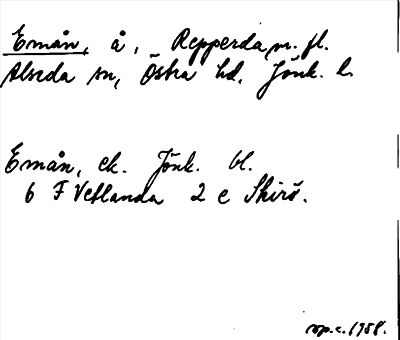 Emån, å, Repperda, m. fl.
Alseda sn, Östra hd, Jönk. l.
Emån, ek. Jönk. bl.
6 F Vetlanda 2 e Skirö.
op.c. 1958.